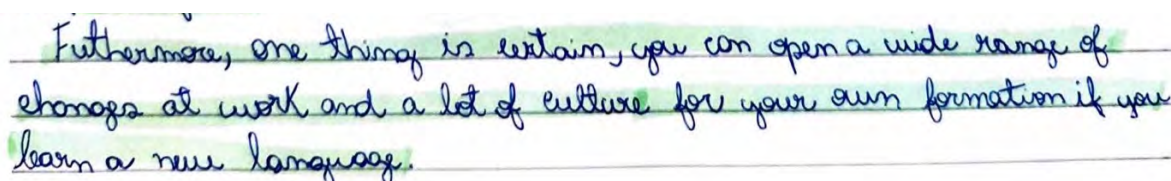 Futhermore, one thing is certain, you can open a wide range of
changes at work and a lot of culture for your own formation if you
learn a new language.